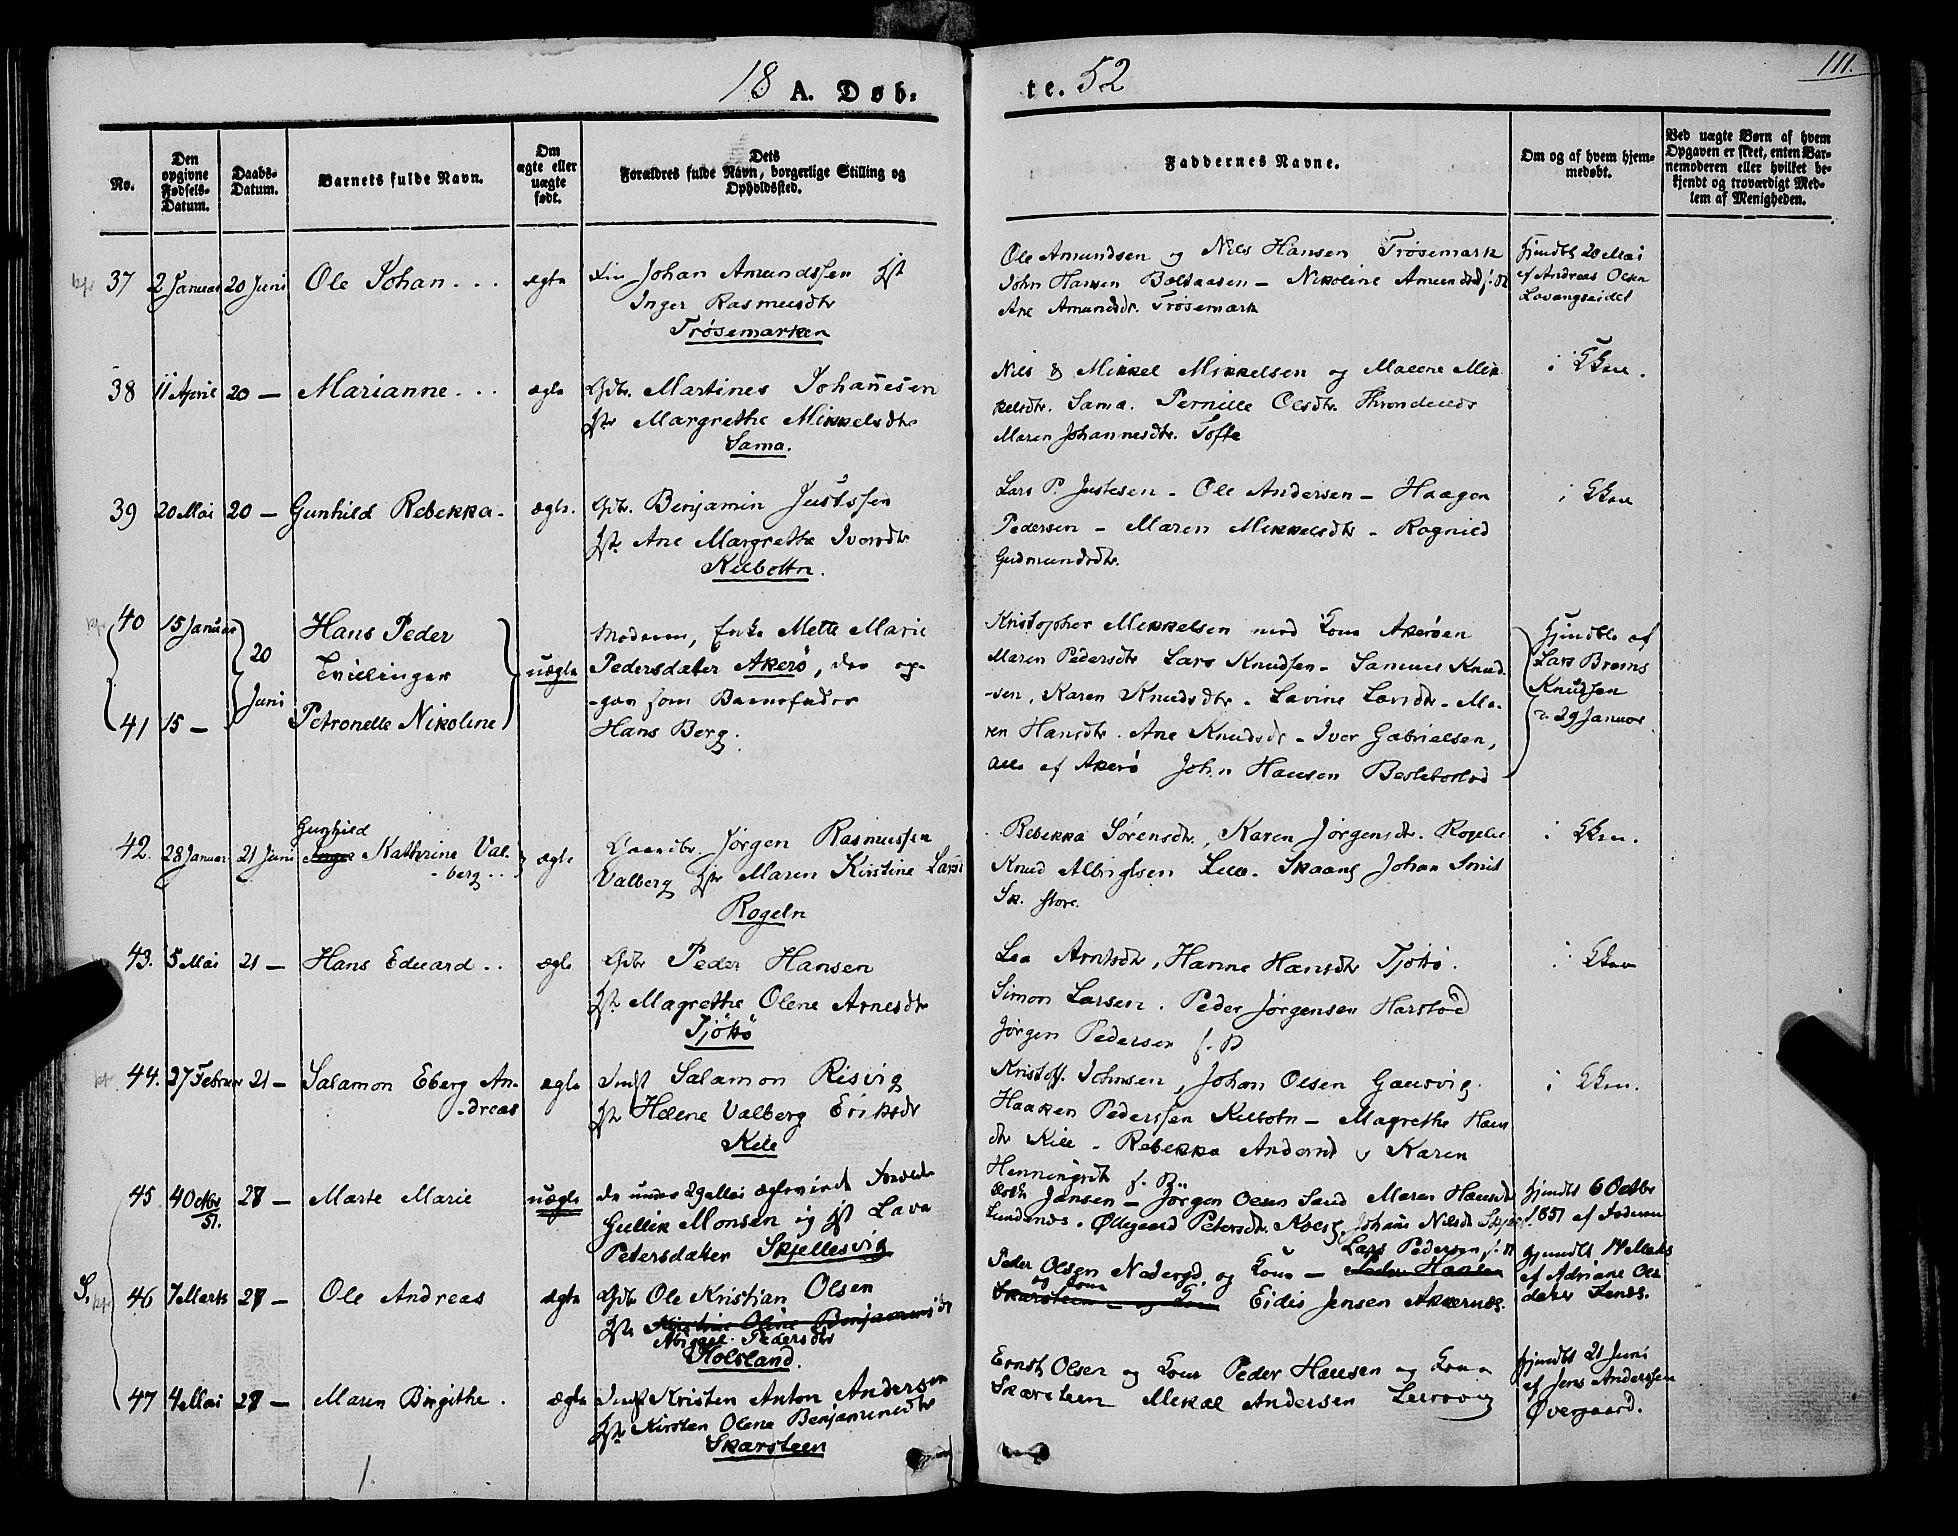 18 A. Døb-
te. 52
111.
No.
Den opgivne Fødsels-Datum.
Daabs-Datum.
Barnets fulde Navn.
Om ægte eller uægte født.
Dets Forældres fulde Navn, borgerlige Stilling og Opholdssted.
Faddernes Navne.
Om og af hvem hjem-
medøbt.
Ved uægte Børn af hvem
Opgaven er skeet, enten Bar-
nemoderen eller hvilket be-
kjendt og troværdigt Med-
lem af Menigheden.
37 2 Januar 20 Juni Ole Johan ægte Johan Amundssen
Inger Rasmusdtr
Trøsemarken
Ole Amundsen og Nils Hansen Trøsemark
John Hansen Boltaasen - Nikoline Amundsd
Ane Amundsdtr. Trøsemark
hjmdbt 20 Mai
af Andreas Olsen
Lavangseidet
38 11 April 20 - Marianne ægte Gdbr. Martines Johannesen
Margrethe Mikkelsdtr
Sama.
Nils & Mikkel Mikkelsen og Malene Mik
kelsdtr. Sama. Pernille Olsdtr. Throndenes
Maren Johannesdtr. Tofte
i Kken.
39 20 Mai 20 - Gunhild Rebekka - ægte. Gdbr. Benjamin Justssen
Ane Margrethe Iversdtr
Kilbottn.
Lars P. Justesen - Ole Andersen - Haagen
Pedersen - Maren Mikkelsdtr - Ragnild
Gudmundsdtr.
i Kken
40 15 Januar 20 Juni Hans Peder
Tvillinger
41 15 - Petronelle Nikoline
uægte
Moderen, Enke Mette Marie
Pedersdater Akerø, der op-
-gav som Barnefader
Hans Berg.
Kristopher Mikkelsen med Kone Akerøen
Maren Pedersdtr Lars Knudsen - Samuel Knud
-sen, Karen Knudsdtr - Lavine Larsdtr - Ma-
ren Hansdtr. Ane Knudsdr - Iver Gabrielsen,
alle af Akerø John Hansen
hjmdbte af
Lars Brøms
Knudsen
d. 29 Januar
42. 28 Januar 21 Juni Gunhild
Inger Kathrine Val-
berg ægte
Jørgen Rasmussen
Valberg Maren Kirstine Lars
Rogeln
Rebekka Sørensdtr, Karen Jørgensdtr. Rogeln
Knud Albrigtsen Lille Skaang Johan Smit
Sk. store.
i Kken.
43. 5 Mai 21 - Hans Eduard .. ægte Gdbr Peder Hansen
Magrethe Olene Arnesdtr
Tjøtø
Lea Arntsdtr, Hanne Hansdtr Tjøtø.
Simon Larsen. Peder Jørgensen Harstad
Jørgen Pedersen f. B
i Kken
44. 27 Februar 21 - Salamon Eberg An-
-dreas ægte Salamon Risvig
Helene Valberg Eriksdr
Kile
Kristoff. Johnsen, Johan Olsen Gausvig.
Haaken Pederssen Kilbotn - Magrethe Hans
dtr Kile - Rebekka Andersd Karen
Henningsdtr f. B.
i Kken.
45. 4 Octbr 51. 28 - Marte Marie uægte
de under 29 Mai ægteviede Forældre
Gullik Monsen og Lava
Petersdater Skjellesvig
Jansen - Jørgen Olsen Sand Maren Hansdtr
Lundenes. Øllegaard Petersdtr. Johans Nilsdtr
hjmdbt 6 Octbr
1851 af Faderen
S. 46 7 Marts 28 - Ole Andreas ægte Gdbr Ole Kristian Olsen
Kirstine Olene Benjaminsdt
Abigael Pedersdtr
Holsland.
Lars Pedersen,
Peder Olsen Nedergd. og Kone - Peder Hansen
og Kone
Skarsteen - og Kone Eidis Jensen Akkernæs.
hjmdbt 14 Marts
af Adriane Ols
dater Fenes.
47 4 Mai 28 - Maren Birgithe. ægte Kristen Anton Andersen
Kirsten Olene Benjaminsdtr
Skarsteen
Ernst Olsen og Kone Peder Hansen og Kone
Skarsteen Mikal Andersen
hjmdbt 21 Juni
af Jens Anderssen
Øvergaard.
1.